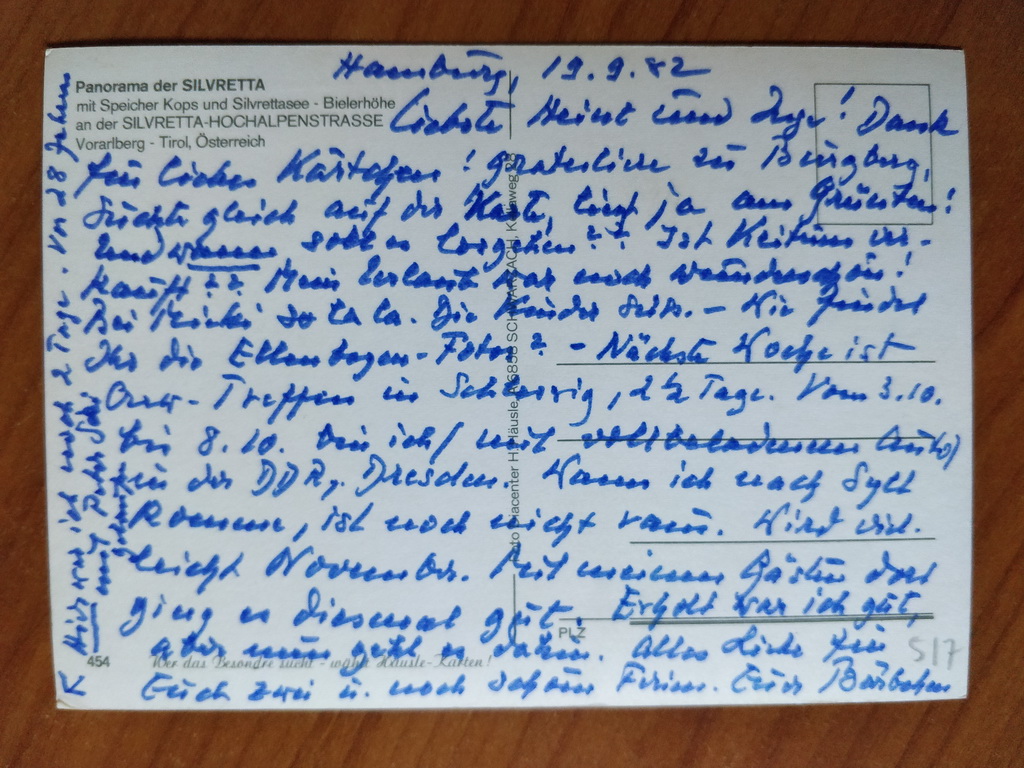 Panorama der SILVRETTA
mit Speicher Kops und Silvrettasee - Bielerhöhe
an der SILVRETTA-HOCHALPENSTRASSE
Vorarlberg - Tirol, Österreich
Hamburg, 19.9.82
Liebste Heint und Inge! Dank
für liebes Kärtchen! gratuliere zu Burgberg,
suchte gleich auf der Karte, liegt ja am Grünten!
Und wann soll es losgehen?? Ist Keitum ver-
kauft?? Mein Urlaub war noch wunderschön!
Bei so la la. Die Kinder süss. - Wie findet
Ihr die Ellenbogen-Fotos? - Nächste Woche ist
Treffen in Schleswig, 2½ Tage. Vom 3.10.
bis 8.10. bin ich (mit vollbeladenem Auto)
in der DDR, Dresden. Wann ich nach Sylt
komme, ist noch nicht raus. Wird viel-
leicht November. Mit meinen Gästen dort
ging es diesmal gut. Erholt war ich gut,
aber nun geht es dahin. Alles Liebe für
Euch zwei u. noch schöne Ferien. Eure Bärbchen
Hier war ich noch 2 Tage. Vor 28 Jahren
mit
454
Wer das Besondre sucht - wählt Häusle-Karten!
PLZ
H. Häusle, A 6858 SCHWARZACH,
517